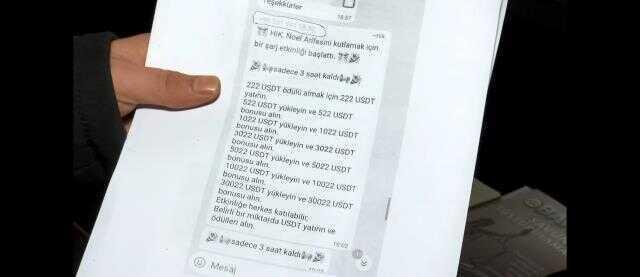 Teşekkürler
18:57
~HiK
HiK, Noel Arifesini kutlamak için
bir şarj etkinliği başlattı.
sadece 3 saat kaldı
222 USDT ödülü almak için 222 USDT
yatırın.
522 USDT yükleyin ve 522 USDT
bonusu alın.
1022 USDT yükleyin ve 1022 USDT
bonusu alın.
3022 USDT yükleyin ve 3022 USDT
bonusu alın.
5022 USDT yükleyin ve 5022 USDT
bonusu alın.
10022 USDT yükleyin ve 10022 USDT
bonusu alın.
30022 USDT yükleyin ve 30022 USDT
bonusu alın.
Etkinliğe herkes katılabilir.
Belirli bir miktarda USDT yatırın ve
ödülleri alın.
19:02
sadece 3 saat kaldı
Mesaj